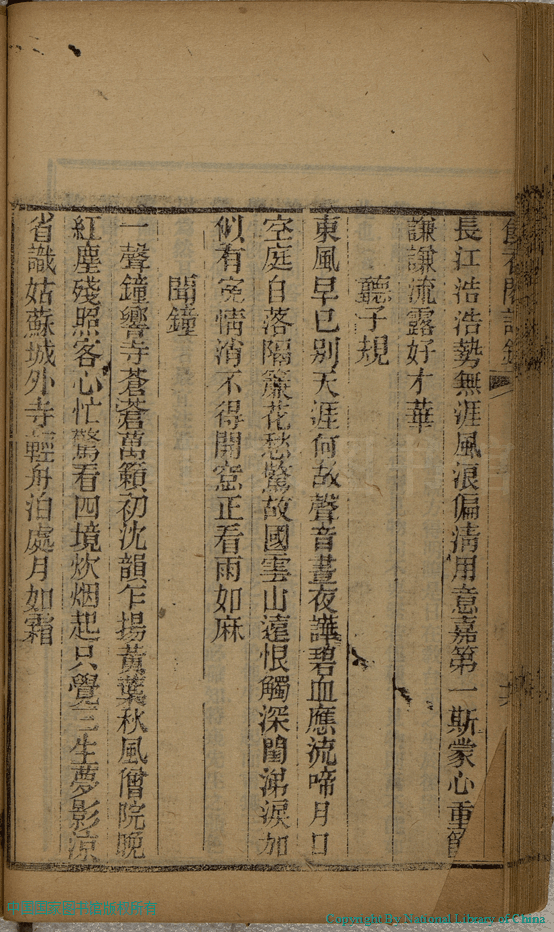 長江浩浩勢無涯風浪偏清用意嘉第一斯蒙心重
謙謙流露好才華
聽子規
東風早已別天涯何故聲音晝夜譁碧血應流啼月口
空庭自落隔簾花愁驚故國雲山遠恨觸深閨涕淚加
似有寃情消不得開窻正看雨如麻
聞鐘
一聲鐘響寺蒼蒼萬籟初沈韻乍揚黃葉秋風僧院晚
紅塵殘照客心忙驚看四境炊烟起只覺三生夢影涼
省識姑蘇城外寺輕舟泊處月如霜
Copyright By National Library of China